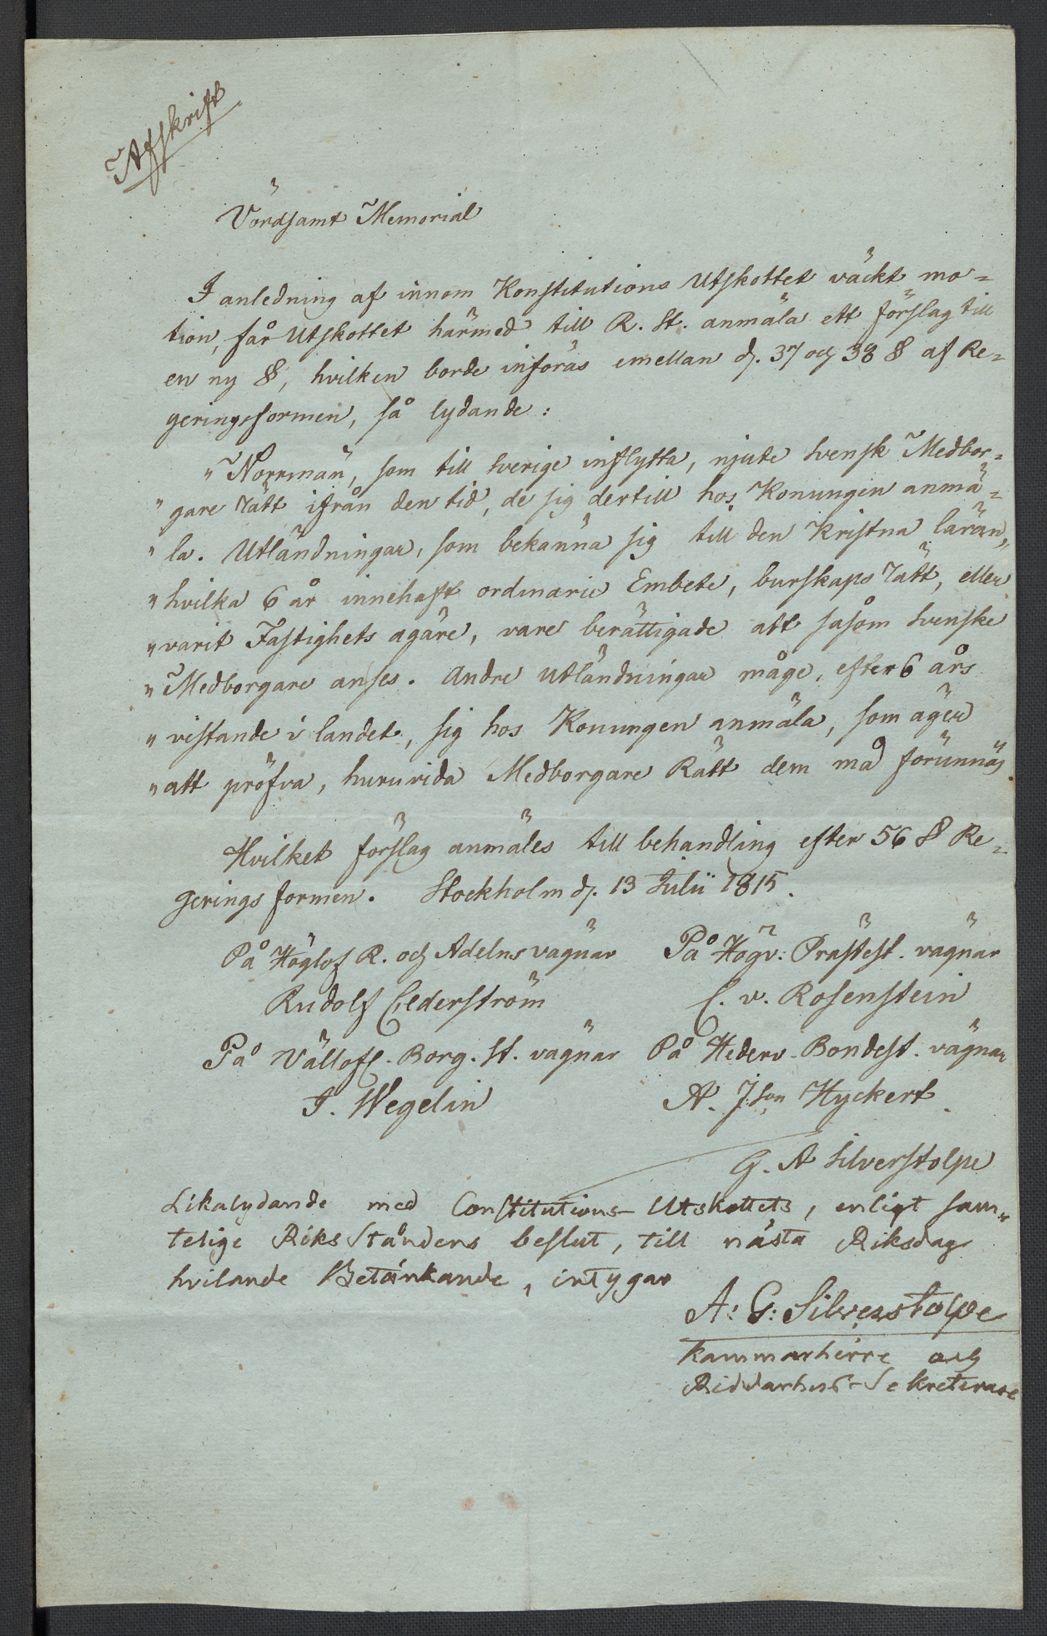 Afskrift
Vördsamt Memorial
I anledning af innom Konstitutions Utskottet väckt mo=
tion, får Utskottet härmed till R. St. anmäla ett förslag till
en ny §, hvilken borde införas emellan d. 37 och 38 § af Re=
geringsformen, så lydande:
"Norrmän, som till Sverige inflytta, njute Svensk Medbor=
"gare Rätt ifrån den tid, de sig dertill hos Konungen anmä=
"la. Utländningar, som bekänna sig till den Kristna läran,
"hvilka 6 år innehaft ordinarie Embete, burskaps Rätt, eller
"varit Fastighets ägare, vare berättigade att såsom Svenske
"Medborgare anses. Andre Utländningar måge, efter 6 års
"vistande i landet, sig hos Konungen anmäla, som äger
"att pröfva, huruvida Medborgare Rätt dem må förunnas.
Hvilket förslag anmäles till behandling efter 56 § Re=
gerings formen. Stockholm d. 13 Julii 1815.
På Höglof R. och Adelns vägnar På Högv: Prästest. vägnar
Rudolf Cederström C. v. Rosenstein
På Vällofl. Borg. St. vägnar På Hederv. Bondest. vägnar
J. Wegelin A. J:son Hyckert
G. A Silverstolpe
Likalydande med Constitutions-Utskottets, enligt sam=
telige Riks Ståndens beslut, till nästa Riksdag
hvilande Betänkande, intygar
A: G: Silverstolpe
Kammarherre och
Riddarhus-Sekreterare